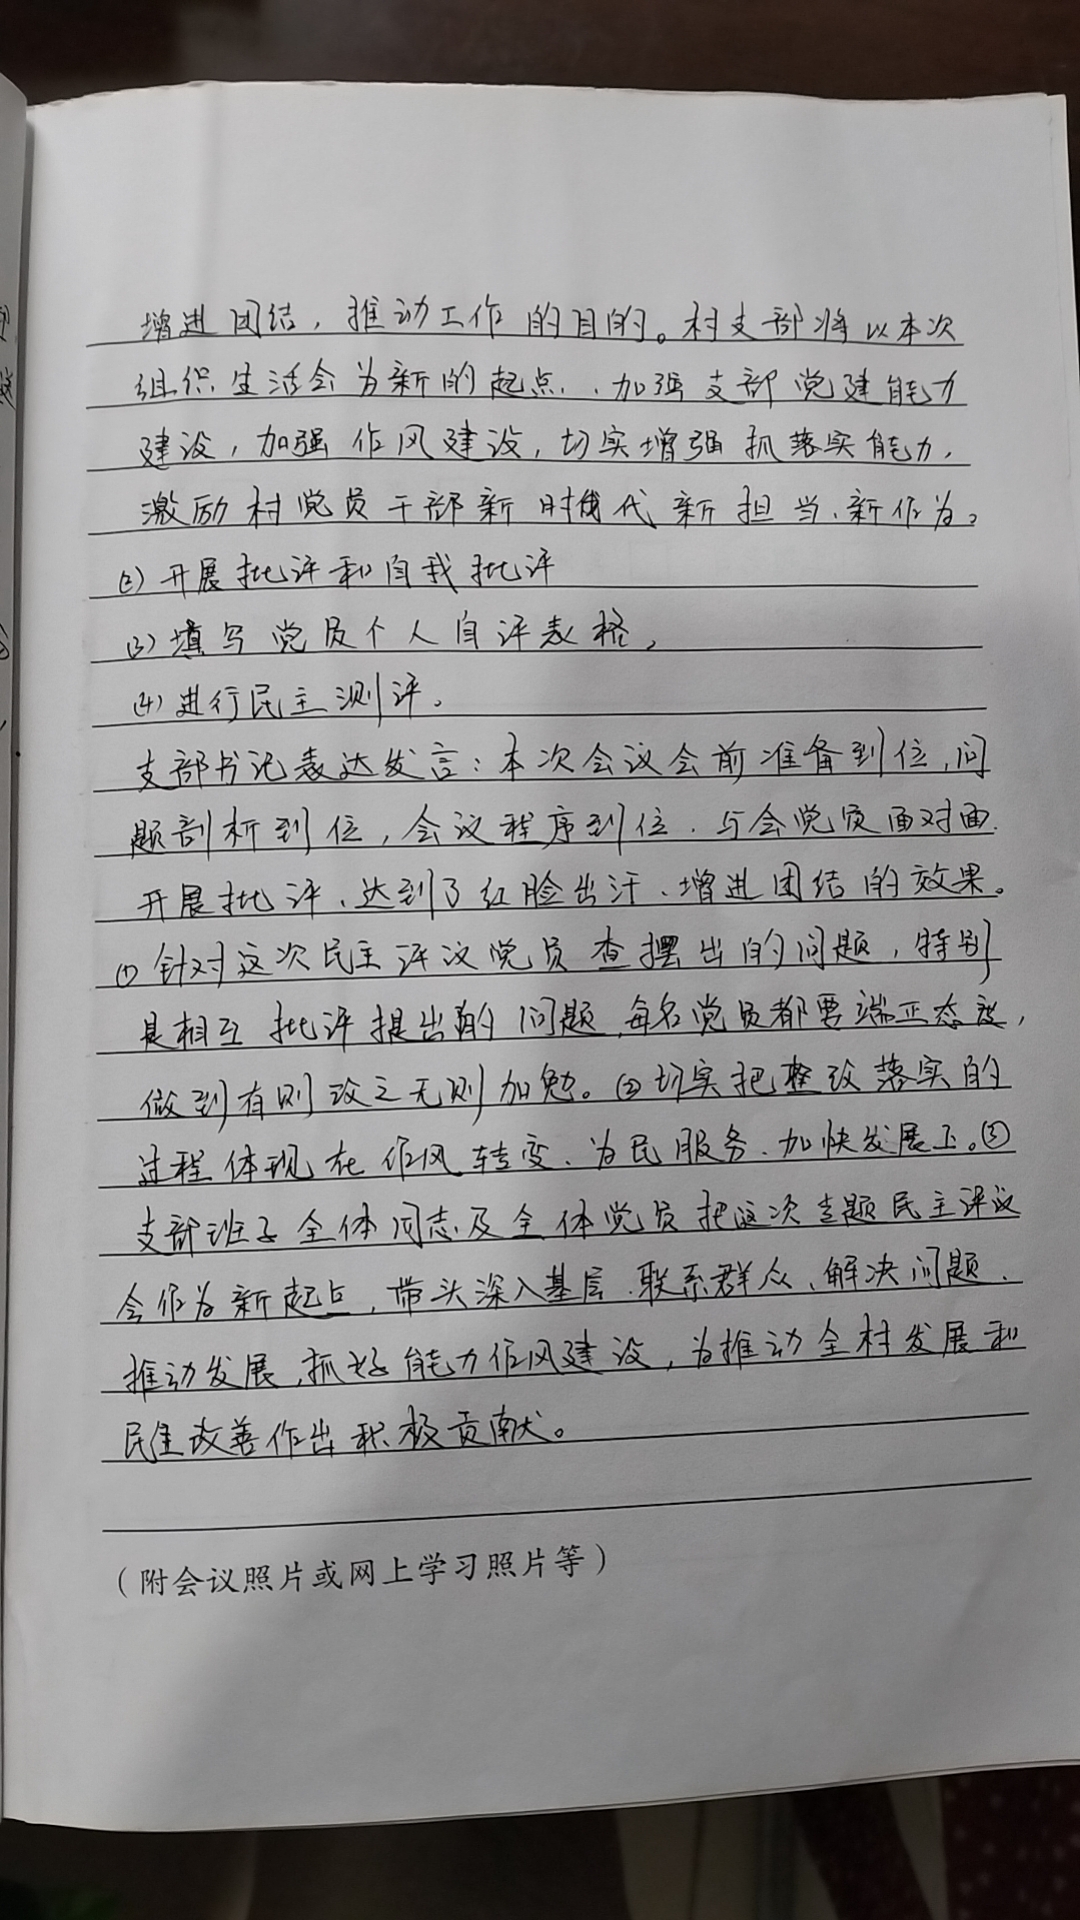 增进团结，推动工作的目的。村支部将以本次
组织生活会为新的起点，加强支部党建能力
建设，加强作风建设，切实增强抓落实能力，
激励村党员干部新时代新担当、新作为。
(2) 开展批评和自我批评
(3) 填写党员个人自评表格，
(4) 进行民主测评。
支部书记表达发言：本次会议会前准备到位，问
题剖析到位，会议程序到位，与会党员面对面
开展批评、达到了红脸出汗、增进团结的效果。
① 针对这次民主评议党员查摆出的问题，特别
是相互批评提出的问题，每名党员都要端正态度，
做到有则改之无则加勉。②切实把整改落实的
过程体现在作风转变、为民服务、加快发展上。③
支部班子全体同志及全体党员把这次专题民主评议
会作为新起点，带头深入基层、联系群众、解决问题、
推动发展，抓好能力作风建设，为推动全村发展和
民生改善作出积极贡献。
（附会议照片或网上学习照片等）